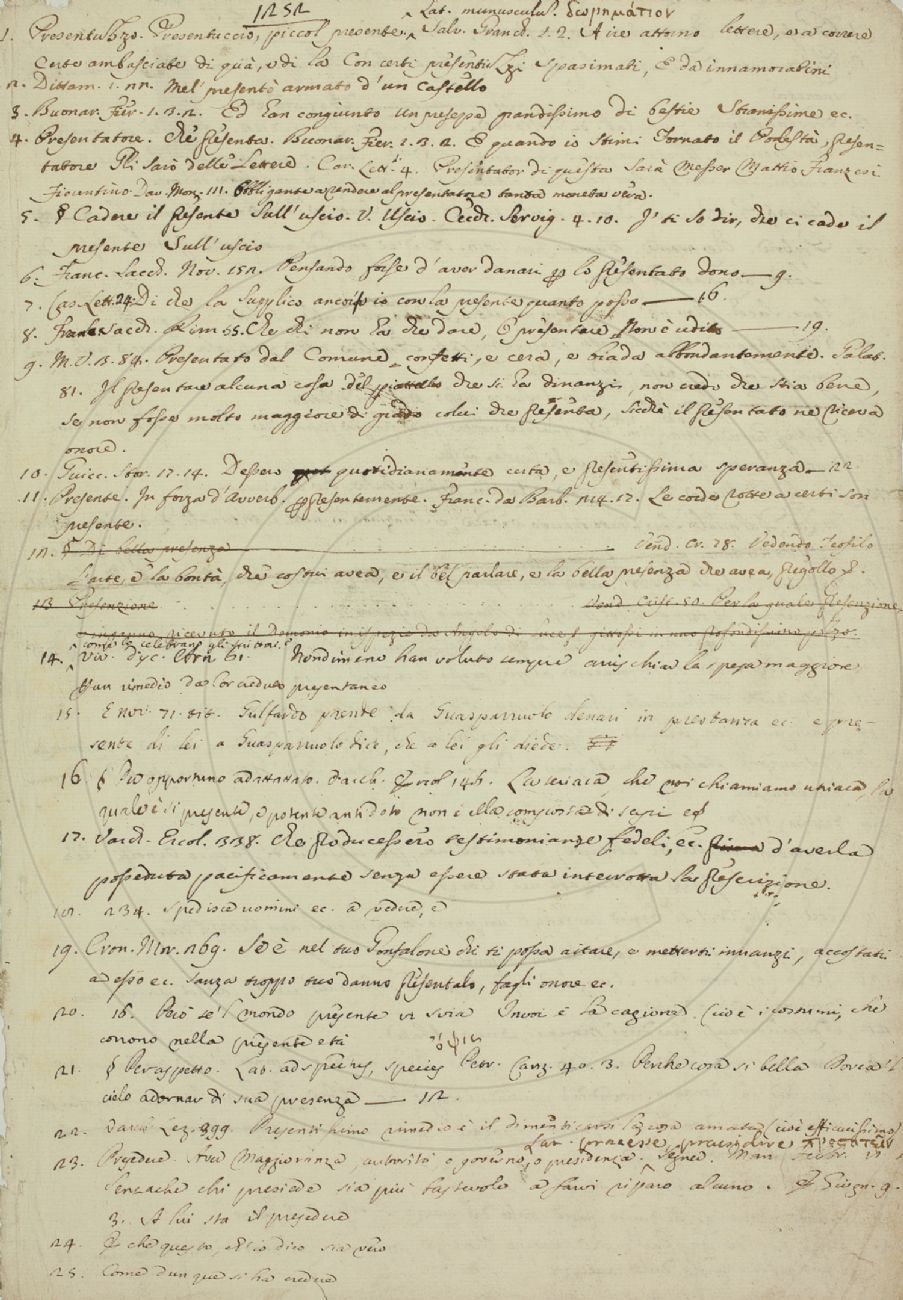 1252
Lat. munusculũ. δωρημάτιον
1. Presentuzzo. Presentuccio, piccol presente. Salv. Granch. 1. 2. A ire attorno lettere, e a correre
Certe ambasciate di quà, e di là Con certi presentuzzi spasimati, E da innamoratini
2. Dittam. 1. 22. Mel' presentò armato d'un castello
3. Buonar. Fier. 1. 3. 2. Ed han congiunto un presepe grandissimo di bestie stranissime ec.
4. Presentatore. Che presenta. Buonar. Fier. 1. 3. 2. E quando io stimi Tornato il Podestà, presen-
tatore Gli sarò delle Lettere. Car. Lett. 4. Presentator di questa sarà Messer Mattio Franzesi
Fiorentino Dav. Mon. 111. Obbligante a rendere al presentatore tanta moneta vera.
5. § Cadere il presente sull'uscio. V. Uscio. Cecch. Servig. 4. 10. I' ti so dir, che ci cade il
presente sull'uscio
6. Franc. Sacch. Nov. 152. Pensando forse d'aver danari per lo presentato dono — 9.
7. Cas. Lett. 24. Di che la supplico ancor io con la presente quanto posso — 16.
8. Franc. Sacch. Rim 55. Che chi non ha che dare, O presentare Non è udito — 19.
9. M. V. 8. 84. Presentato dal Comune confetti, e cera, e biada abbondantemente. Galat.
81. Il presentare alcuna cosa del piattello che si ha dinanzi, non credo che stia bene,
se non fosse molto maggiore di grado colui che presenta, sicchè il presentato ne riceva
onore.
10. Guicc. Stor. 17. 14. Dessero quotidianamente certa, e presentissima speranza — 22
11. Presente. In forza d'Avverb. per presentemente. Franc. da Barb. 124. 17. Le corde rotte a certi son
presente.
12. § Di bella presenza Vend. Cr. 28. Vedendo Teofilo
L'arte, e la bontà, che costui avea, e il bel parlare, e la bella presenza che avea, pregollo
13 Presenzione Vend. Crist. 50. Per la quale presenzione,
e inganno, ricevuto il Demonio in ispezie da Angelo di luce, gittossi in uno profondissimo pozzo.
14. Viv. Disc. Arn. 61. Nondimeno han voluto sempre arrischiar la spesa maggiore
Per un rimedio da lor creduto presentaneo
15. E nov. 71. tit. Gulfardo prende da Guasparruolo denari in prestanza ec. e pre-
sente di lei a Guasparruolo dice, che a lei gli diede.
16. § Per opportuno adattato. Varch. Ercol. 146. La teriaca, che noi chiamiamo utriaca, la
quale è sì presente, e potente antidoto non è ella composta di serpi
17. Varch. Ercol. 338. Che producessero testimonianze fedeli, ec. d'averla
posseduta pacificamente senza essere stata interrotta la prescrizione.
18. 234. Spedisce uomini ec. a vedere, e
19. Cron. Mor. 269. Se è nel tuo Gonfalone chi ti possa aitare, e metterti innanzi, accostati
ad esso ec. sanza troppo tuo danno presentalo, fagli onore ec.
20. 16. Però se'l mondo presente vi svia In voi è la cagione. Cioè i costumi, che
corrono nella presente età
ὄψις
21. § Per aspetto. Lat. adspectus, species Petr. Canz. 40. 3. Perchè cosa sì bella Dovea 'l
cielo adornar di sua presenza — 12.
22. Varch. Lez. 399. Presentissimo rimedio è il dimenticarsi la cosa amata cioè efficacissimo
Lat. praeesse praesidere
23. Presedere. Aver Maggioranza autorità e governo, o presidenza. Segner. Mann. Febbr.
Senza che chi presiede sia più bastevole a farvi riparo alcuno. Giugn. 9.
3. A lui sta il presedere
24. Per che questo, ch'io dico sia vero
25. Come dunque si ha credere